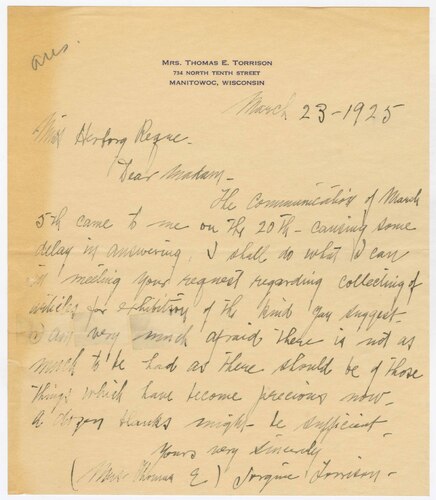 ans.
MRS. THOMAS E. TORRISON
734 NORTH TENTH STREET
MANITOWOC, WISCONSIN
March 23-1925
Miss Herborg Reque-
Dear Madam-
The communication of March
5th came to me on the 20th- causing some
delay in answering. I shall do what I can
in meeting your request regarding collecting of
articles for exhibition of the kind you suggest-
I am very much afraid there is not as
much to be had as there should be of those
things which have become precious now-
A dozen blanks might- be sufficient
Yours very sincerely
(Mrs. Thomas E) Torrison-